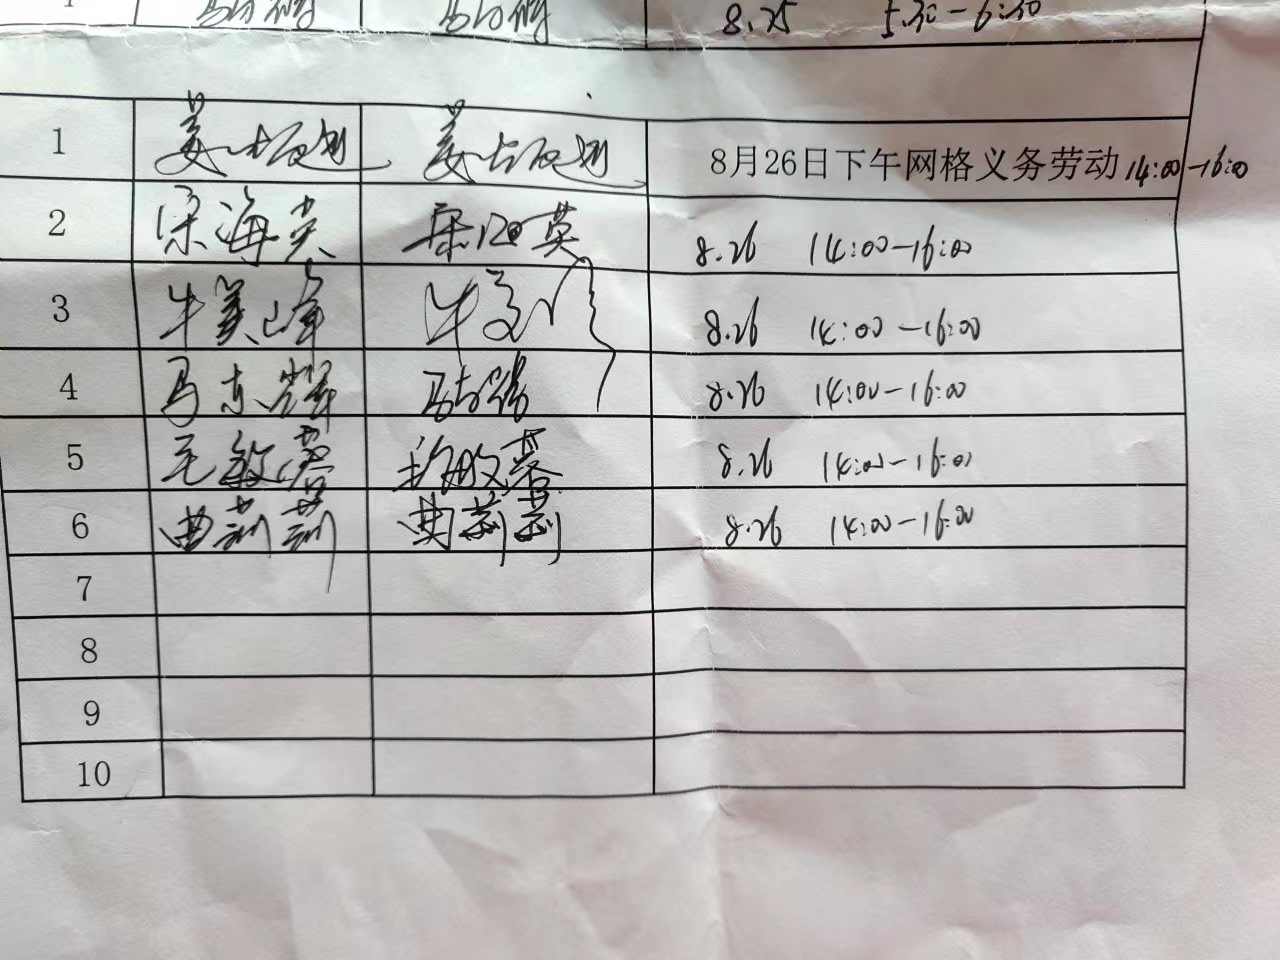 8.25 5:30-6:30
1 8月26日下午网格义务劳动 14:00-16:00
2 梁海英 梁海英 8.26 14:00-16:00
3 牛美峰 8.26 14:00-16:00
4 马东辉 8.26 14:00-16:00
5 毛敏蓉 8.26 14:00-16:00
6 曲莉莉 曲莉莉 8.26 14:00-16:00
7
8
9
10